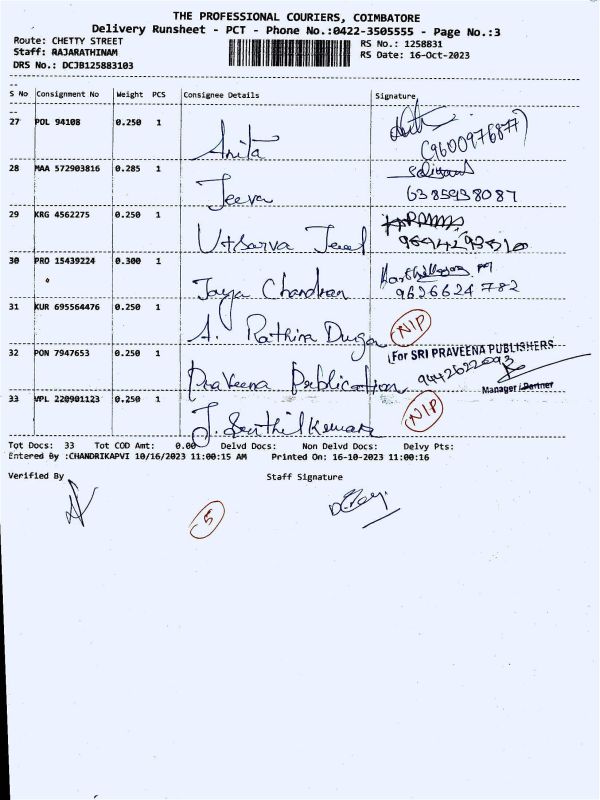 THE PROFESSIONAL COURIERS, COIMBATORE
Delivery Runsheet - PCT - Phone No.:0422-3505555 - Page No.:3
Route: CHETTY STREET RS No.: 1258831
Staff: RAJARATHINAM RS Date: 16-Oct-2023
DRS No.: DCJB125883103
S No Consignment No Weight PCS Consignee Details Signature
27 POL 94108 0.250 1 Anita (9600976877)
28 MAA 572903816 0.285 1 Jeeva 6385938087
29 KRG 4562275 0.250 1 Utsarva Jewel
30 PRO 15439224 0.300 1 Jaya Chandran 9626624782
31 KUR 695564476 0.250 1 A. Rathina Durga NIP
32 PON 7947653 0.250 1 Praveena Publication For SRI PRAVEENA PUBLISHERS 9442622093 Manager / Partner
33 VPL 220901123 0.250 1 J. Senthil Kumar NIP
Tot Docs: 33 Tot COD Amt: 0.00 Delvd Docs: Non Delvd Docs: Delvy Pts:
Entered By :CHANDRIKAPVI 10/16/2023 11:00:15 AM Printed On: 16-10-2023 11:00:16
Verified By Staff Signature
5